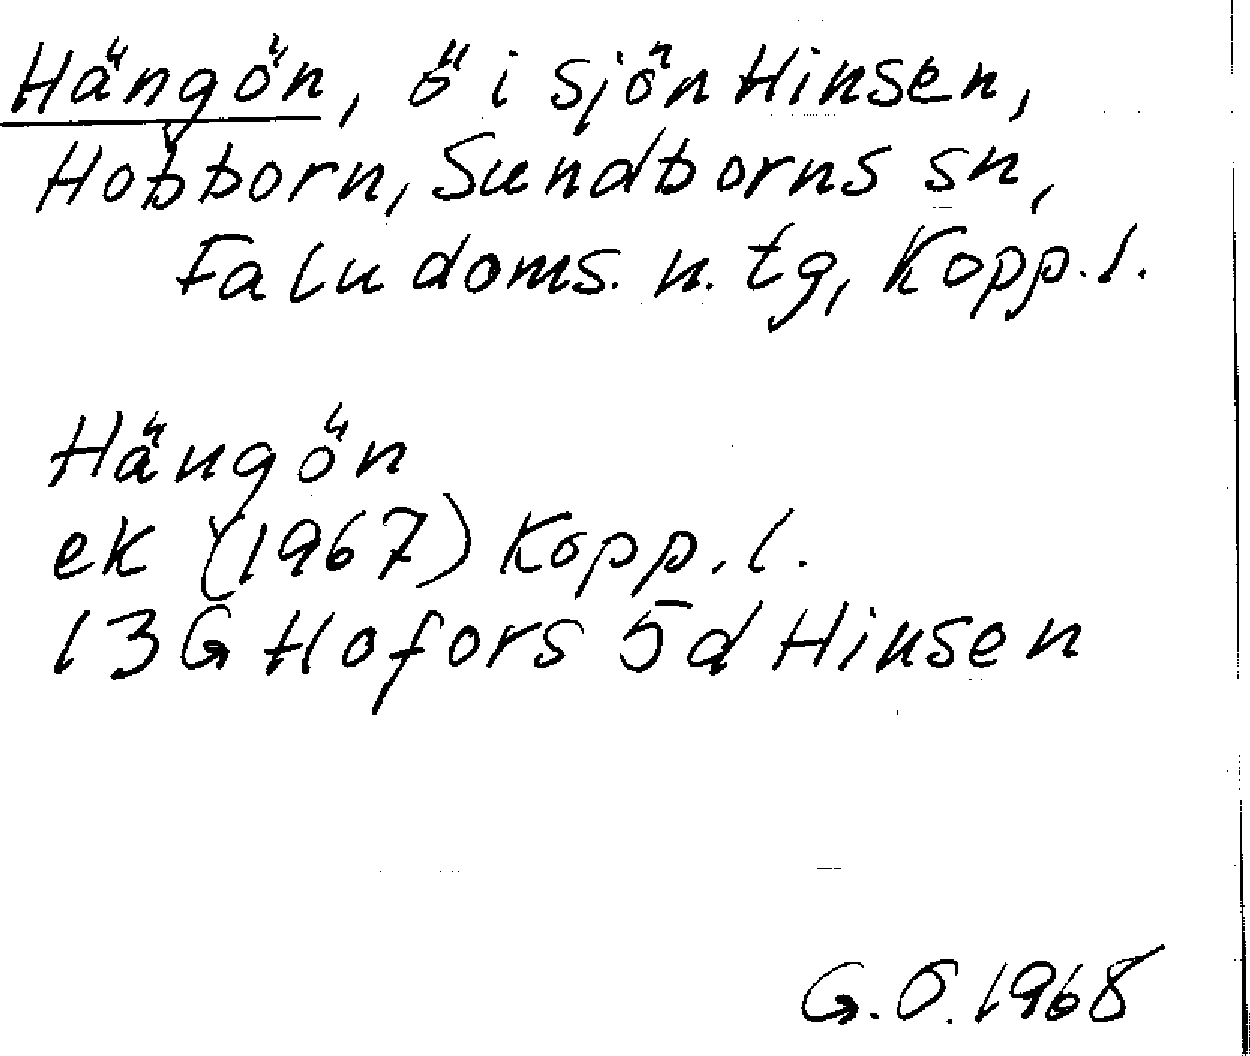 Hängön, ö i sjön Hinsen,
Hobborn, Sundborns sn,
Falu doms. n. tg, Kopp. l.
Hängön
ek (1967) Kopp. l.
13G Hofors 5d Hinsen
G. O. 1968